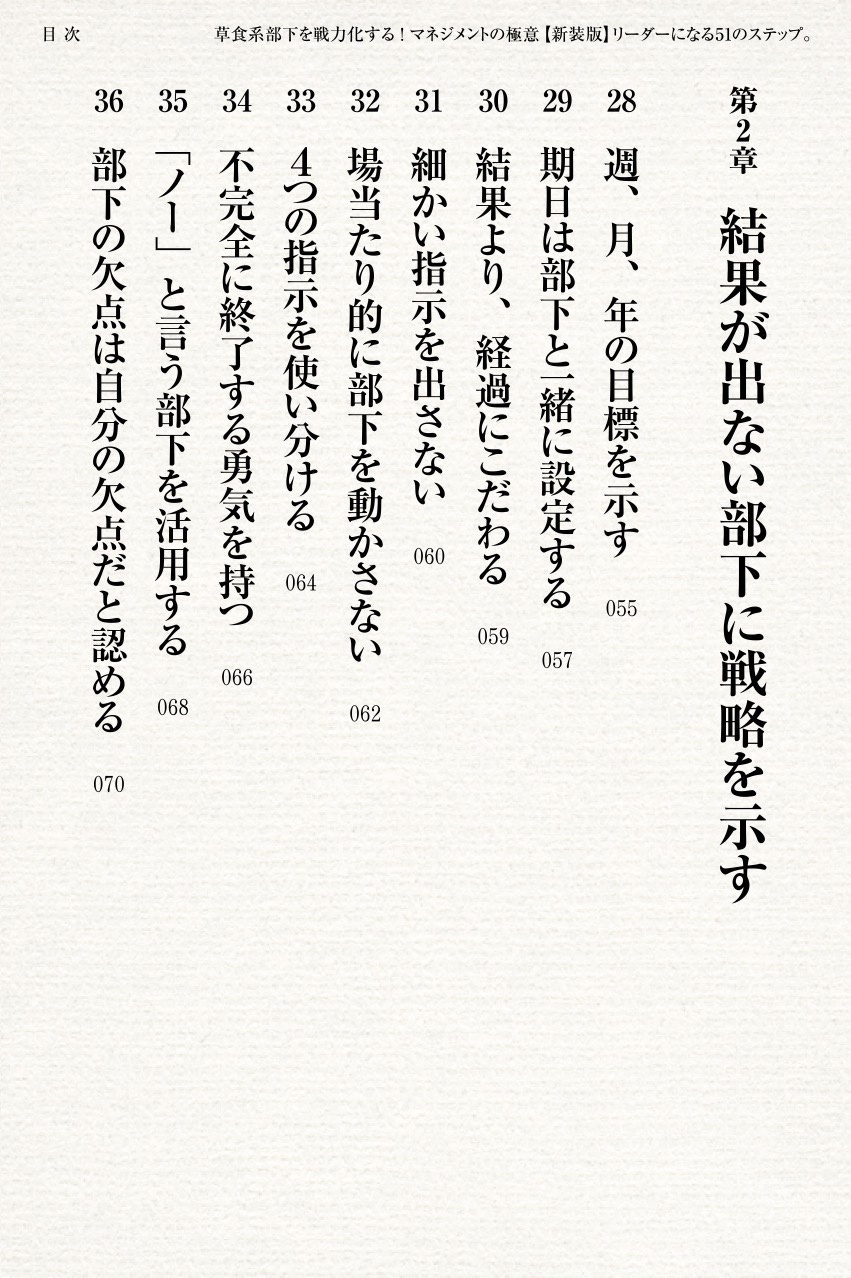 目次
草食系部下を戦力化する！マネジメントの極意【新装版】リーダーになる51のステップ。
第2章 結果が出ない部下に戦略を示す
28 週、月、年の目標を示す 055
29 期日は部下と一緒に設定する 057
30 結果より、経過にこだわる 059
31 細かい指示を出さない 060
32 場当たり的に部下を動かさない 062
33 4つの指示を使い分ける 064
34 不完全に終了する勇気を持つ 066
35 「ノー」と言う部下を活用する 068
36 部下の欠点は自分の欠点だと認める 070